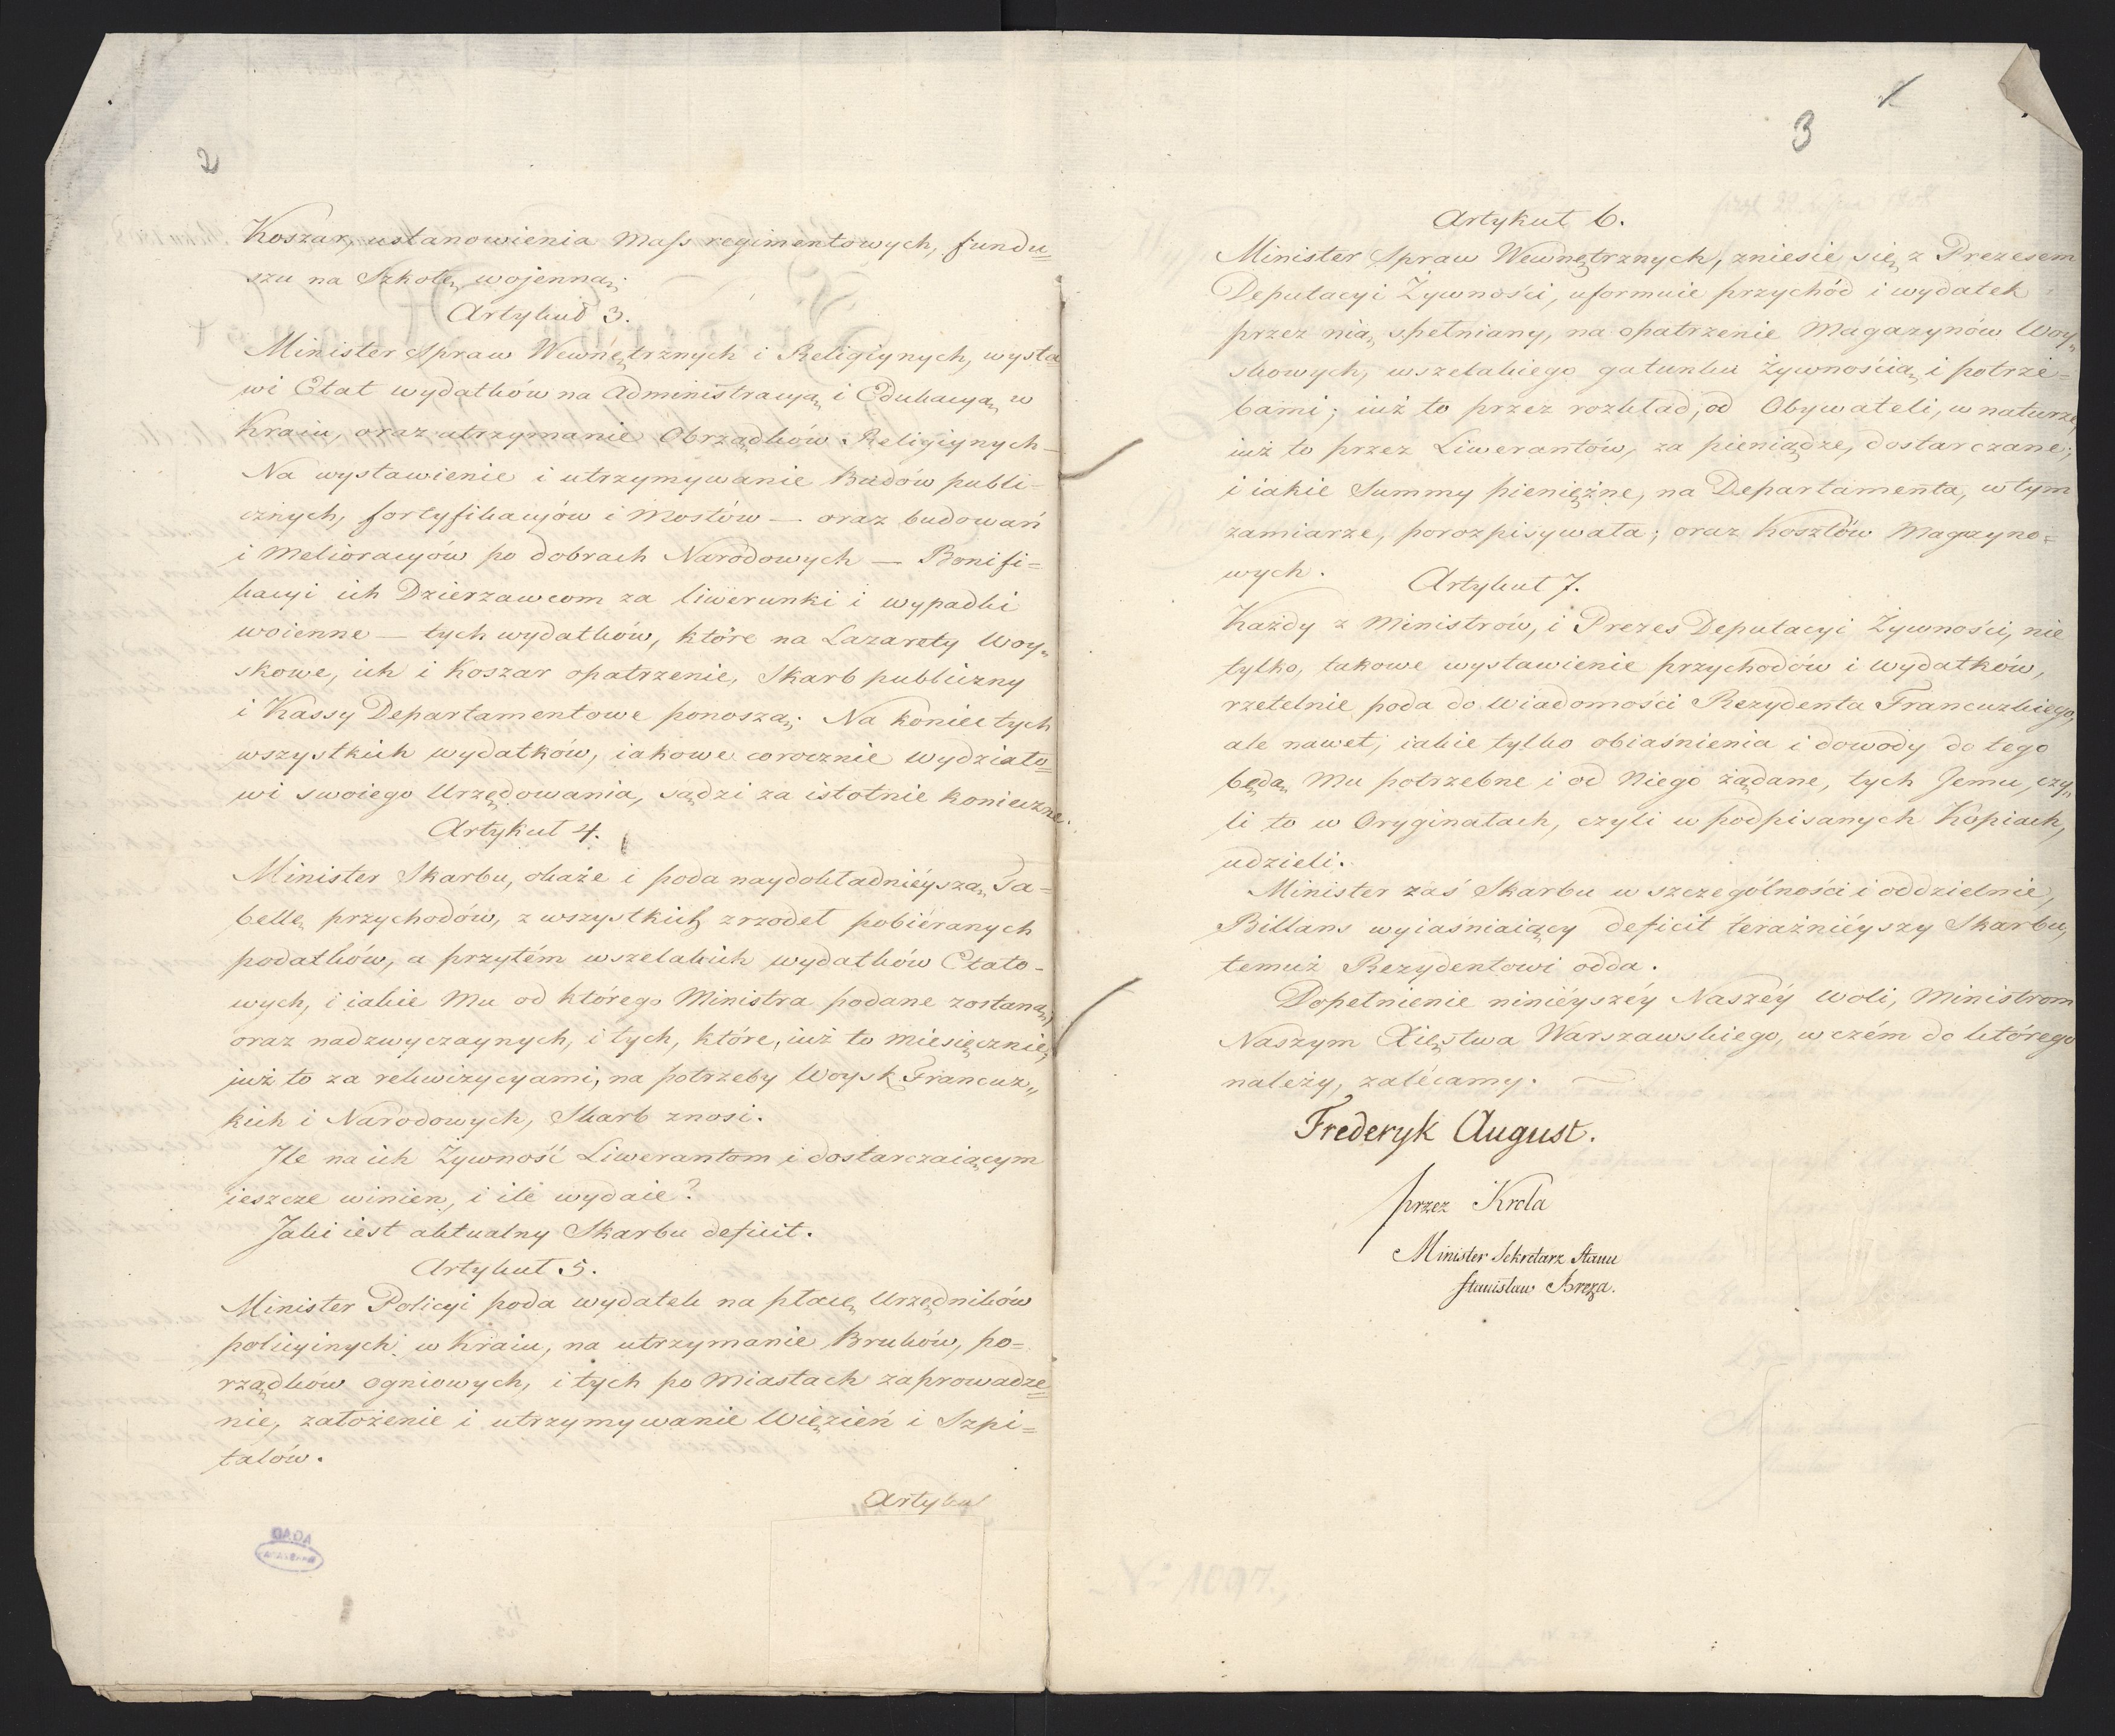 2
Koszar, ustanowienia Mass regimentowych, fundu=
szu na Szkołę wojenną;
Artykuł 3.
Minister Spraw Wewnętrznych i Religiynych, wysta=
wi Etat wydatków na Administracyą i Edukacyą w
Kraiu, oraz utrzymanie Obrządków Religiynych —
Na wystawienie i utrzymywanie Budów publi=
cznych, fortyfikacyów i Mostów — oraz budowań
i Melioracyów po dobrach Narodowych — Bonifi=
kacyi ich Dzierzawcom za liwerunki i wypadki
woienne — tych wydatków, które na Lazarety Woy„
skowe, ich i Koszar opatrzenie, Skarb publiczny
i Kassy Departamentowe ponoszą; Na koniec tych
wszystkich wydatków, iakowe corocznie Wydziało=
wi swoiego Urzędowania, sądzi za istotnie konieczne.
Artykuł 4.
Minister Skarbu, okaże i poda naydokładnieyszą Ta=
bellę przychodów, z wszystkich zrzodeł pobiéranych
podatków, a przytém wszelakich wydatków Etato=
wych, i iakie Mu od którego Ministra podane zostaną,
oraz nadzwyczaynych, i tych, które, iuż to miesięcznie,
iuż to za rekwizycyami, na potrzeby Woysk Francuz„
kich i Narodowych, Skarb znosi.
Ile na ich Żywność Liwerantom i dostarczaiącym
ieszcze winien, i ile wydaie?
Jaki iest aktualny Skarbu deficit.
Artykuł 5.
Minister Policyi poda wydatek na płacę Urzędników
policyinych w Kraiu, na utrzymanie Bruków, po=
rządków ogniowych, i tych po Miastach zaprowadze=
nie, założenie i utrzymywanie Więzień i Szpi=
talów.
Artykuł
3
Artykuł 6.
Minister Spraw Wewnętrznych, zniesie się z Prezesem
Deputacyi Żywności, uformuie przychód i wydatek
przez nią spełniany, na opatrzenie Magazynów Woy„
skowych, wszelakiego gatunku żywnością i potrze=
bami; iuż to przez rozkład, od Obywateli, w naturze,
iuż to przez Liwerantów, za pieniądze, dostarczane;
i iakie Summy pieniężne, na Departamenta, w tym
zamiarze, porozpisywała; oraz kosztów Magazyno=
wych.
Artykuł 7.
Każdy z Ministrów, i Prezes Deputacyi Żywności, nie
tylko, takowe wystawienie przychodów i wydatków,
rzetelnie poda do wiadomości Rezydenta Francuzkiego,
ale nawet, iakie tylko obiaśnienia i dowody do tego
będą Mu potrzebne i od Niego żądane, tych Jemu, czy„
li to w Oryginałach, czyli w podpisanych Kopiach,
udzieli.
Minister zaś Skarbu w szczególności i oddzielnie,
Billans wyiaśniaiący deficit teraźnieyszy Skarbu,
temuż Rezydentowi odda.
Dopełnienie niniéyszéy Naszéy Woli, Ministrom
Naszym Xięstwa Warszawskiego, w czém do którego
należy, zalécamy.
Frederyk August.
przez Krola
Minister Sekretarz Stanu
Stanisław Breza.